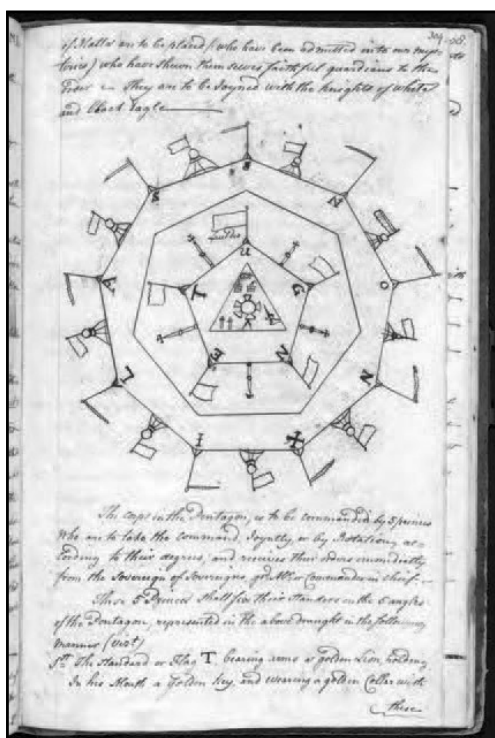 of Malta are to be placed, (who have been admitted into our mys=
teries) who have shewn themselves faithful guardians to the
Order — They are to be Joyned with the Knights of White
and black Eagle
S
S N
U
T G
A O
E N
L N
I X
The camp in the Pentagon, is to be commanded by 5 princes
Who are to take the command, Joyntly, or by Rotation, ac=
cording to their degrees, and receives their orders immediately
from the Sovereign of Sovereigns, Commander in chief.
These 5 Princes Shall fix their Standers on the 5 angles
of the Pentagon, represented in the above draught in the following
manner (vizt)
The Standard or Flag T. bearing arms a golden Lion, holding
In his Mouth a Golden Key, and wearing a golden Coller with
these